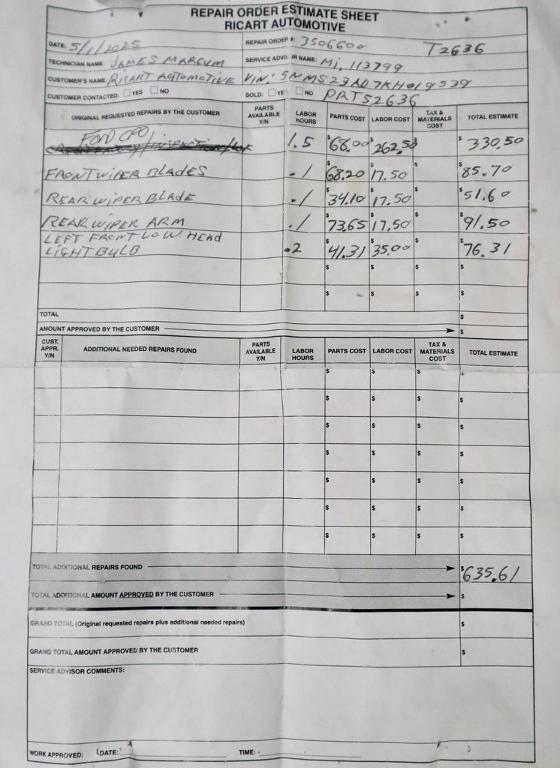 REPAIR ORDER ESTIMATE SHEET
RICART AUTOMOTIVE
DATE: 5/1/2025 REPAIR ORDER #: 3506600 T2636
TECHNICIAN NAME: JAMES MARCUM SERVICE ADVISOR NAME: Mi, 113799
CUSTOMER'S NAME: RICART AUTOMOTIVE VIN: 5NMS23AD7KH019539
CUSTOMER CONTACTED: YES NO SOLD: YES NO PRT52636
ORIGINAL REQUESTED REPAIRS BY THE CUSTOMER PARTS AVAILABLE Y/N LABOR HOURS PARTS COST LABOR COST TAX & MATERIALS COST TOTAL ESTIMATE
FORD CPO 1.5 $68.00 $262.50 $ $330.50
FRONT WIPER BLADES .1 $68.20 17.50 $ $85.70
REAR WIPER BLADE .1 $34.10 $17.50 $ $51.60
REAR WIPER ARM .1 $73.65 $17.50 $ $91.50
LEFT FRONT LOW HEAD
LIGHT BULB .2 $41.31 $35.00 $ $76.31
$ $ $ $
$ $ $ $
TOTAL $
AMOUNT APPROVED BY THE CUSTOMER $
CUST. APPR. Y/N ADDITIONAL NEEDED REPAIRS FOUND PARTS AVAILABLE Y/N LABOR HOURS PARTS COST LABOR COST TAX & MATERIALS COST TOTAL ESTIMATE
$ $ $ $
$ $ $ $
$ $ $ $
$ $ $ $
$ $ $ $
$ $ $ $
$ $ $ $
TOTAL ADDITIONAL REPAIRS FOUND $635.61
TOTAL ADDITIONAL AMOUNT APPROVED BY THE CUSTOMER $
GRAND TOTAL (Original requested repairs plus additional needed repairs) $
GRAND TOTAL AMOUNT APPROVED BY THE CUSTOMER $
SERVICE ADVISOR COMMENTS:
WORK APPROVED: DATE: TIME: